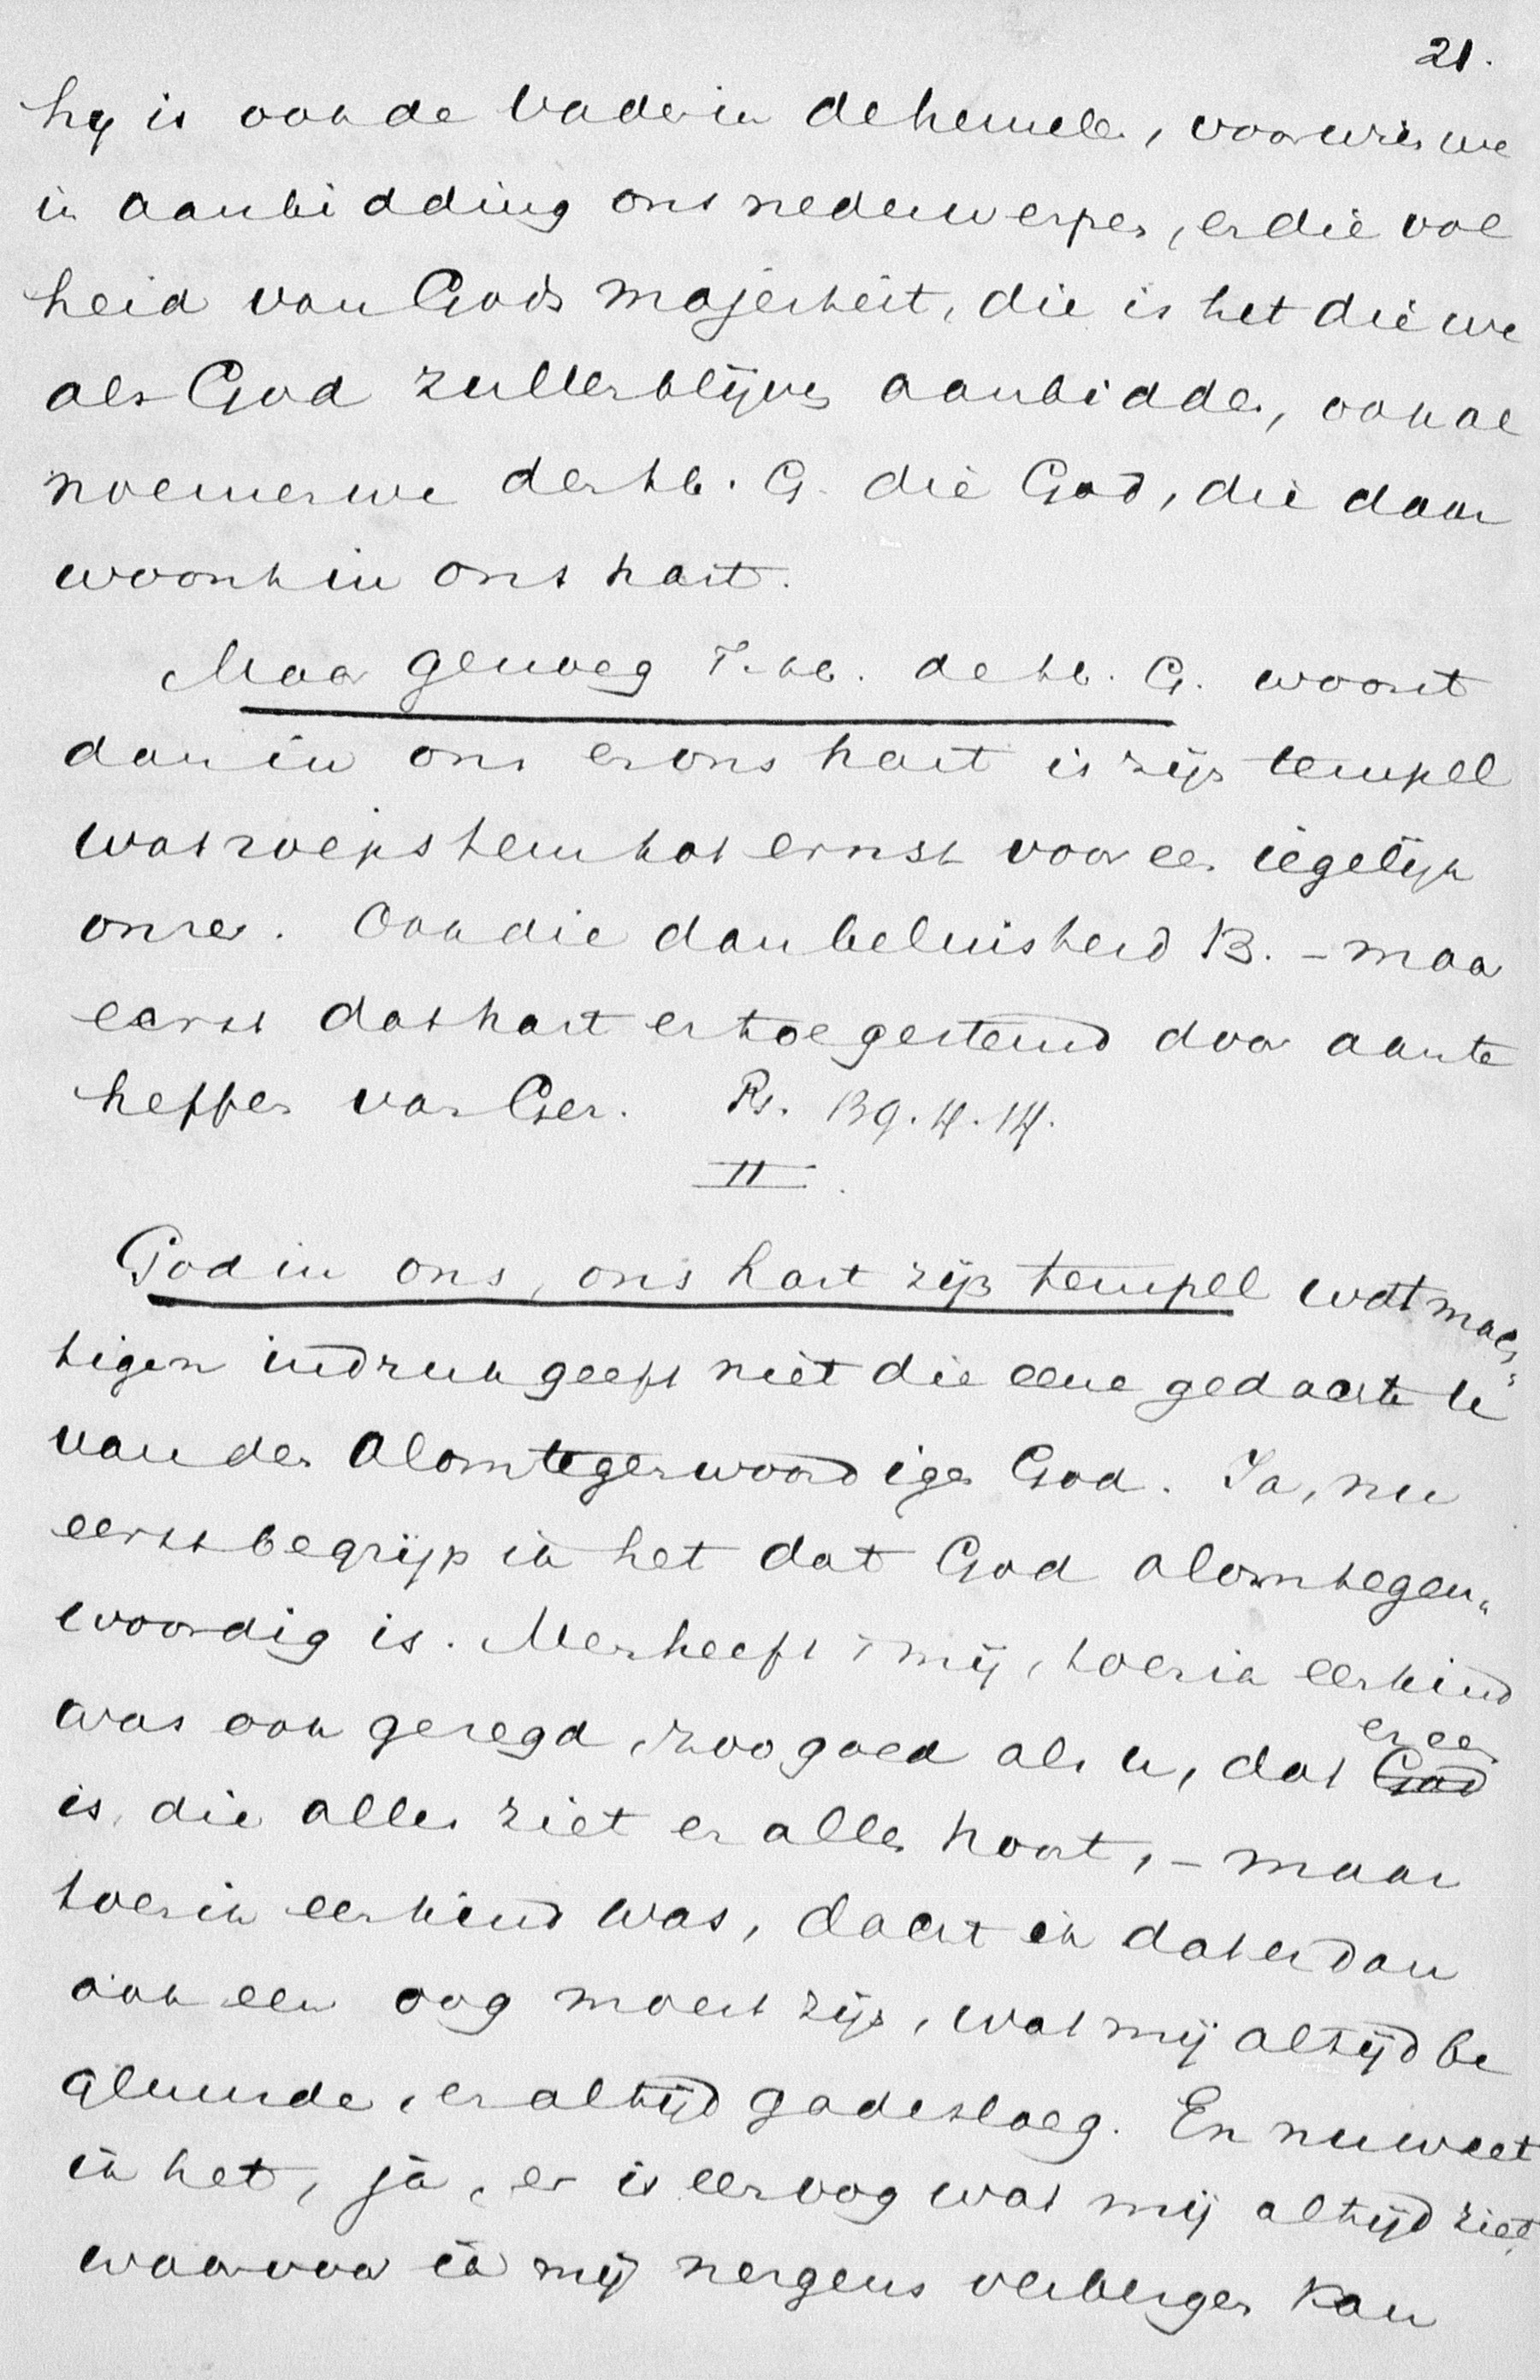 21.
hy is ook de Vader in de hemelen, voor wien we
in aanbidding ons nederwerpen, en die vol
heid van Gods majesteit, die is het die we
als God zullen blijven aanbidden, ook al
noemen we den hl. G. die God, die daar
woont in ons hart.
Maar genoeg de hl. G. woont
dan in ons en ons hart is zijn tempel
wat roepstem tot ernst voor een iegelijk
onzer. Ook die dan beluisterd B. - maar
eerst dat hart er toe gestemd door aan te
heffen van Gez. Ps. 139. 4. 14.
II.
God in ons, ons hart zijn tempel wat mach„
tigen indruk geeft niet die eene gedachte U
van den Alomtegenwoordigen God. Ja, nu
eerst begrijp ik het dat God alomtegen„
woordig is. Men heeft mij, toen ik een kind
was ook gezegd, zoo goed als u, dat God
er een
is, die alles ziet en alles hoort, - maar
toen ik een kind was, dacht ik dat er dan
ook een oog moest zijn, wat mij altijd be
gluurde, en altijd gadesloeg. En nu weet
ik het, ja, er is een oog wat mij altijd ziet,
waarvoor ik mij nergens verbergen kan